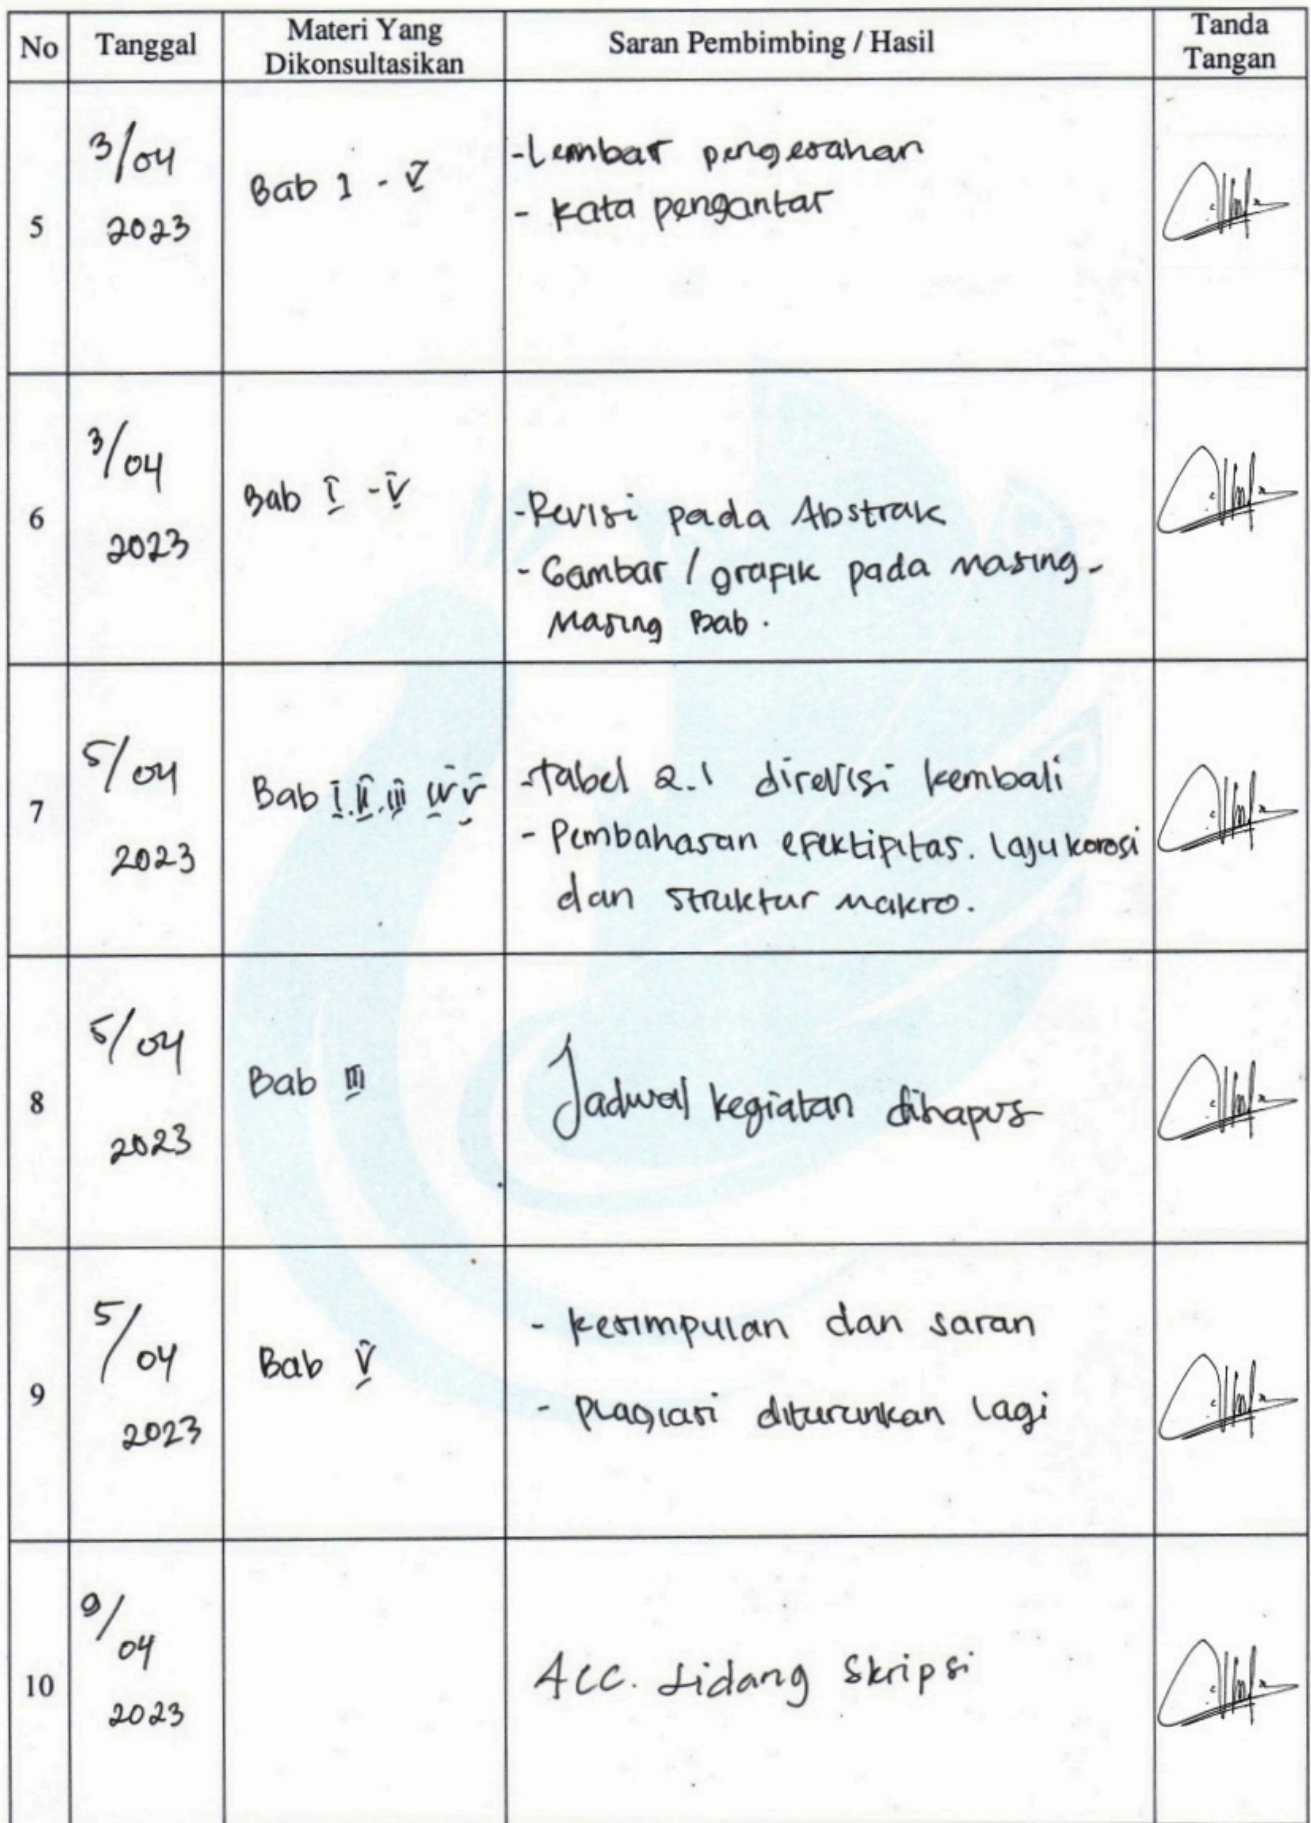 No Tanggal Materi Yang Dikonsultasikan Saran Pembimbing / Hasil Tanda Tangan
5
3/04
2023
Bab I - V
- Lembar pengesahan
- Kata pengantar
6
3/04
2023
Bab I - V
- Revisi pada Abstrak
- Gambar / grafik pada masing-
masing Bab.
7
5/04
2023
Bab I. II. III IV V
- tabel 2.1 direvisi kembali
- Pembahasan efektifitas. laju korosi
dan struktur makro.
8
5/04
2023
Bab III
Jadwal kegiatan dihapus
9
5/04
2023
Bab V
- kesimpulan dan saran
- plagiasi diturunkan lagi
10
9/04
2023
ACC. Sidang Skripsi